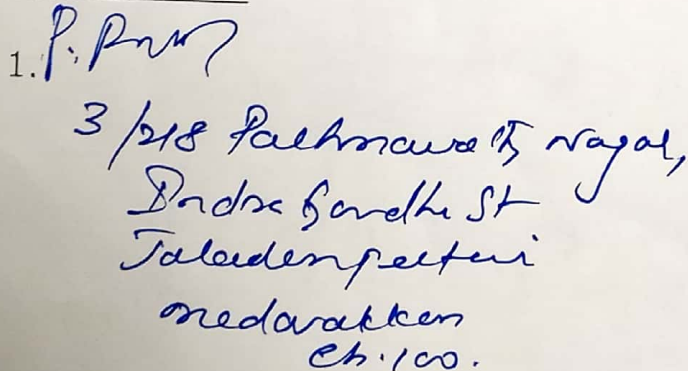 1.
3/218 Pathmavathy Nagar,
Indra Gandhi St
Jaladenpettai
medavakkam
Ch.100.